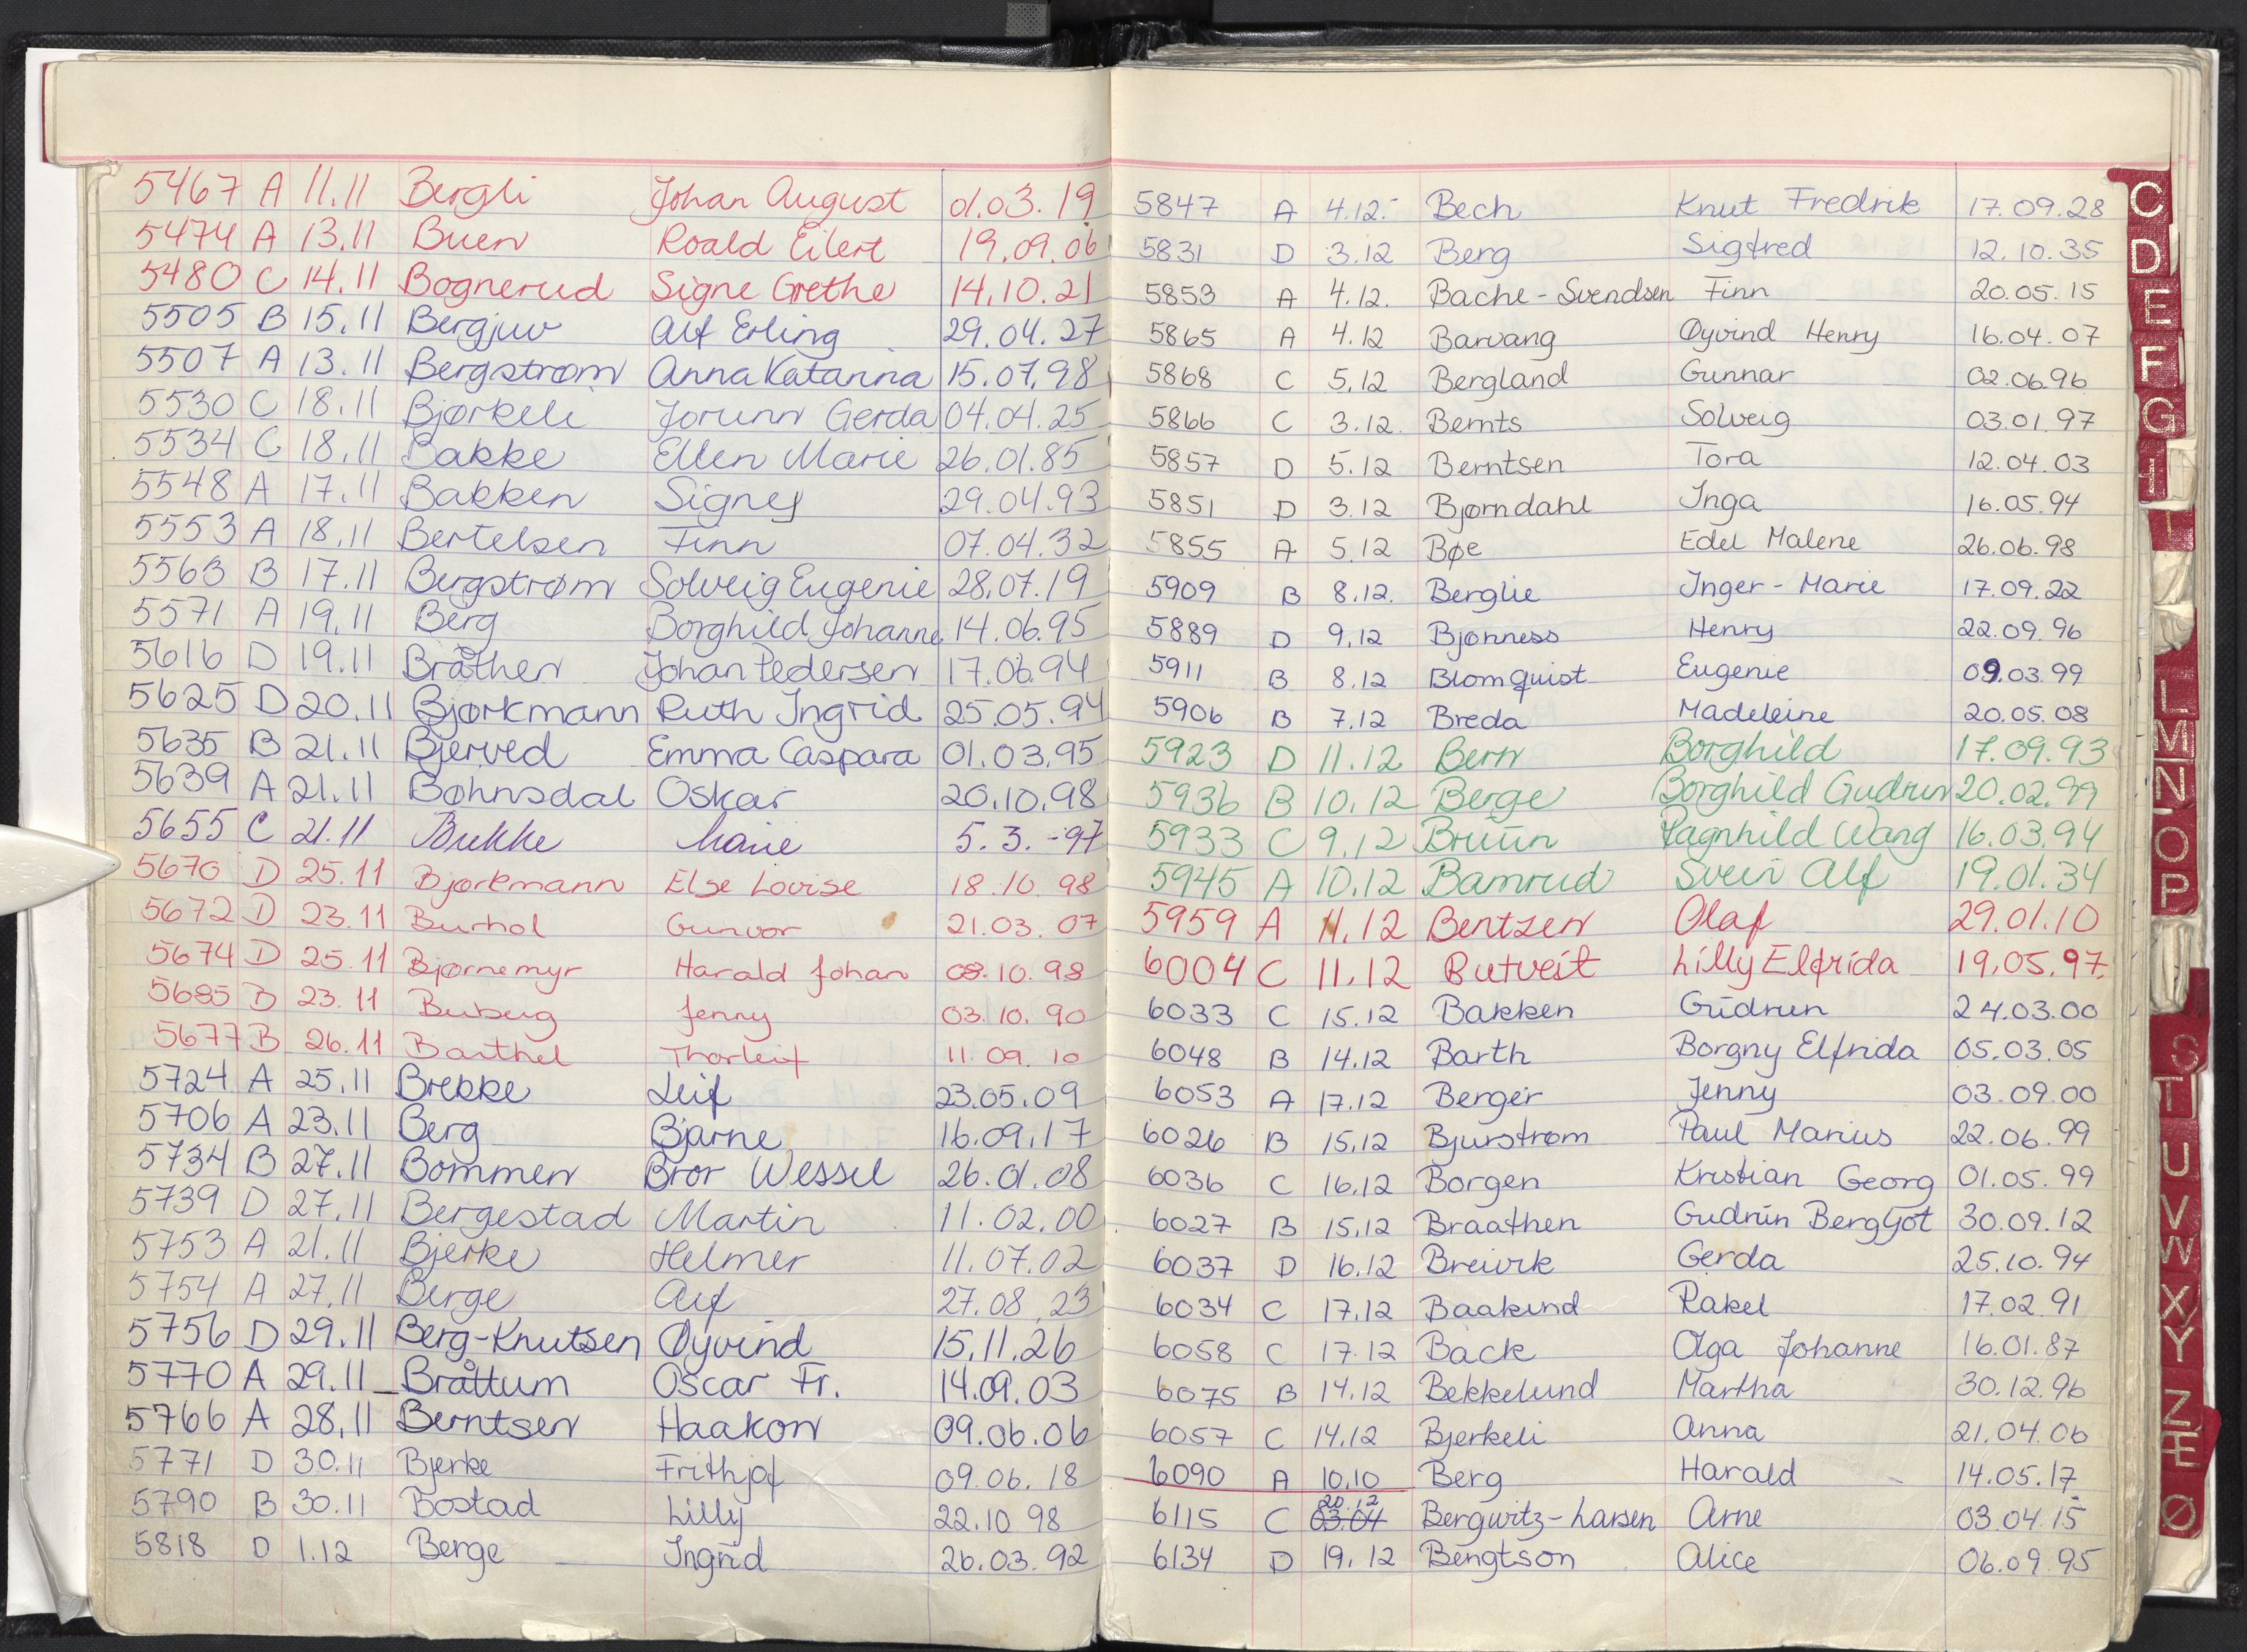 5467 A 11.11 Bergli Johan August 01.03.19
5474 A 13.11 Buen Roald Eilert 19.09.06
5480 C 14.11 Bognerud Signe Grethe 14.10.21
5505 B 15.11 Bergjuv Alf Erling 29.04.27
5507 A 13.11 Bergstrøm Anna Katarina 15.07.98
5530 C 18.11 Bjørkeli Jorunn Gerda 04.04.25
5534 C 18.11 Bakke Ellen Marie 26.01.85
5548 A 17.11 Bakken Signy 29.04.93
5553 A 18.11 Bertelsen Finn 07.04.32
5563 B 17.11 Bergstrøm Solveig Eugenie 28.07.19
5571 A 19.11 Berg Borghild Johanne 14.06.95
5616 D 19.11 Bråthen Johan Pedersen 17.06.94
5625 D 20.11 Bjørkmann Ruth Ingrid 25.05.94
5635 B 21.11 Bjerved Emma Caspara 01.03.95
5639 A 21.11 Bøhnsdal Oskar 20.10.98
5655 C 21.11 Brekke Marie 5.3.-97
5670 D 25.11 Bjørkmann Else Lovise 18.10.98
5672 D 23.11 Burhol Gunvor 21.03.07
5674 D 25.11 Bjørnemyr Harald Johan 08.10.98
5685 B 23.11 Buberg Jenny 03.10.90
5677 B 26.11 Barthel Thorleif 11.09.10
5724 A 25.11 Brekke Leif 23.05.09
5706 A 23.11 Berg Bjarne 16.09.17
5734 B 27.11 Bommen Bror Wessel 26.01.08
5739 D 27.11 Bergestad Martin 11.02.00
5753 A 21.11 Bjerke Helmer 11.07.02
5754 A 27.11 Berge Alf 27.08.23
5756 D 29.11 Berg-Knutsen Øyvind 15.11.26
5770 A 29.11 Bråttum Oscar Fr. 14.09.03
5766 A 28.11 Berntsen Haakon 09.06.06
5771 D 30.11 Bjerke Frithjof 09.06.18
5790 B 30.11 Bostad Lilly 22.10 98
5818 D 1.12 Berge Ingrid 26.03.92
5847 A 4.12.- Bech Knut Fredrik 17.09.28
5831 D 3.12 Berg Sigfred 12.10.35
5853 A 4.12. Bache-Svendsen Finn 20.05.15
5865 A 4.12 Barvang Øyvind Henry 16.04.07
5868 C 5.12 Bergland Gunnar 02.06.96
5866 C 3.12. Bernts Solveig 03.01.97
5857 D 5.12 Berntsen Tora 12.04.03
5851 D 3.12 Bjørndahl Inga 16.05.94
5855 A 5.12 Bøe Edel Malene 26.06.98
5909 B 8.12. Berglie Inger-Marie 17.09.22
5889 D 9.12 Bjønness Henry 22.09.96
5911 B 8.12 Blomquist Eugenie 09.03.99
5906 B 7.12 Breda Madeleine 20.05.08
5923 D 11.12 Bern Borghild 17.09.93
5936 B 10.12 Berge Borghild Gudrun 20.02.99
5933 C 9.12 Bruun Ragnhild Wang 16.03.94
5945 A 10.12 Bamrud Svein Alf 19.01.34
5959 A 11.12 Bentzen Olaf 29.01.10
6004 C 11.12 Butveit Lilly Elfrida 19.05.97.
6033 C 15.12 Bakken Gudrun 24.03.00
6048 B 14.12 Barth Borgny Elfrida 05.03.05
6053 A 17.12 Berger Jenny 03.09.00
6026 B 15.12 Bjurstrøm Paul Marius 22.06.99
6036 C 16.12 Borgen Kristian Georg 01.05.99
6027 B 15.12 Braathen Gudrun Bergljot 30.09.12
6037 D 16.12 Breivik Gerda 25.10.94
6034 C 17.12 Baaklind Rakel 17.02.91
6058 C 17.12 Back Olga Johanne 16.01.87
6075 B 14.12 Bekkelund Martha 30.12.96
6057 C 14.12 Bjerkeli Anna 21.04.06
6090 A 10.10 Berg Harald 14.05.17
20.12
6115 C 03.04 Bergwitz-Larsen Arne 03.04.15
6134 D 19.12 Bengtson Alice 06.09.95
C
D
E
F
G
H
I
L
M
N
O
P
S
T
U
V
W
X
Y
Z
Æ
Ø